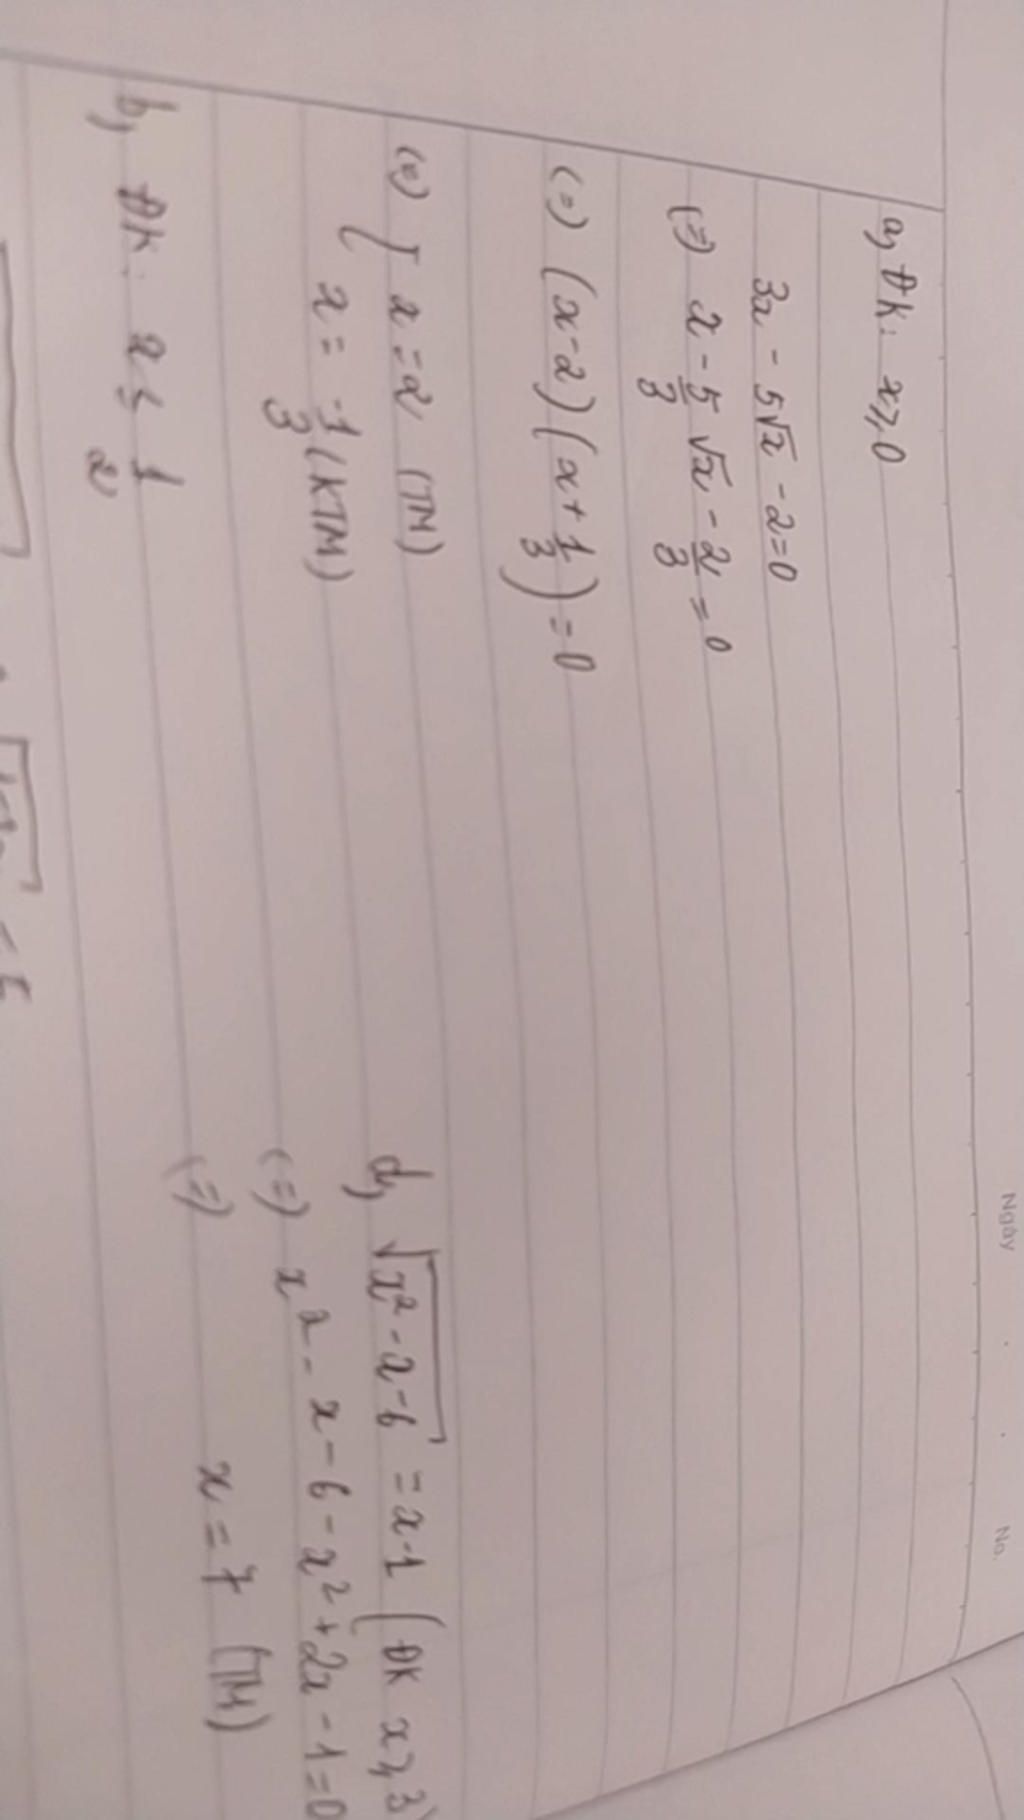 Ngày
No.
a, ĐK: x ≥ 0
3x - 5√x - 2 = 0
(=) x - 5/3 √x - 2/3 = 0
(=) (x-2)(x + 1/3) = 0
(=) [ x = 2 (TM)
x = -1/3 (KTM)
d, √(x² - x - 6) = x - 1 (ĐK x ≥ 3)
(=) x² - x - 6 - x² + 2x - 1 = 0
(=) x = 7 (TM)
b, ĐK: x ≤ 1/2